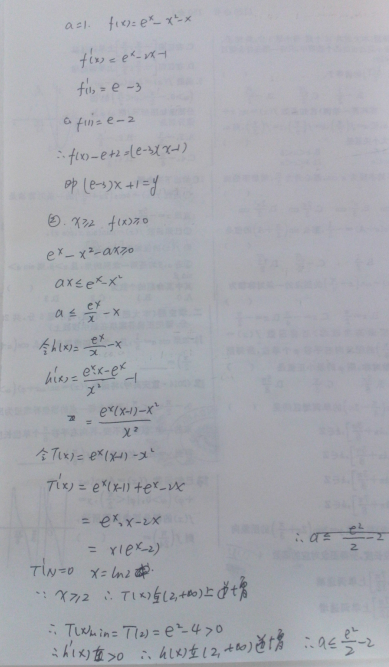 a=1. f(x)=e^x-x^2-x
f'(x)=e^x-2x-1
f'(1)=e-3
f(1)=e-2
∴f(x)-e+2=(e-3)(x-1)
即(e-3)x+1=y
②. x≥2 f(x)≥0
e^x-x^2-ax≥0
ax≤e^x-x^2
a≤e^x/x-x
令h(x)=e^x/x-x
h'(x)=(e^x x-e^x)/x^2-1
=(e^x(x-1)-x^2)/x^2
令T(x)=e^x(x-1)-x^2
T'(x)=e^x(x-1)+e^x-2x
=e^x·x-2x
=x(e^x-2)
∴a≤e^2/2-2
T'(x)=0 x=ln2
∵x≥2 ∴T(x)在(2,+∞)上单增
∴T(x)min=T(2)=e^2-4>0
∴h'(x)>0 ∴h(x)在(2,+∞)单增 ∴a≤e^2/2-2